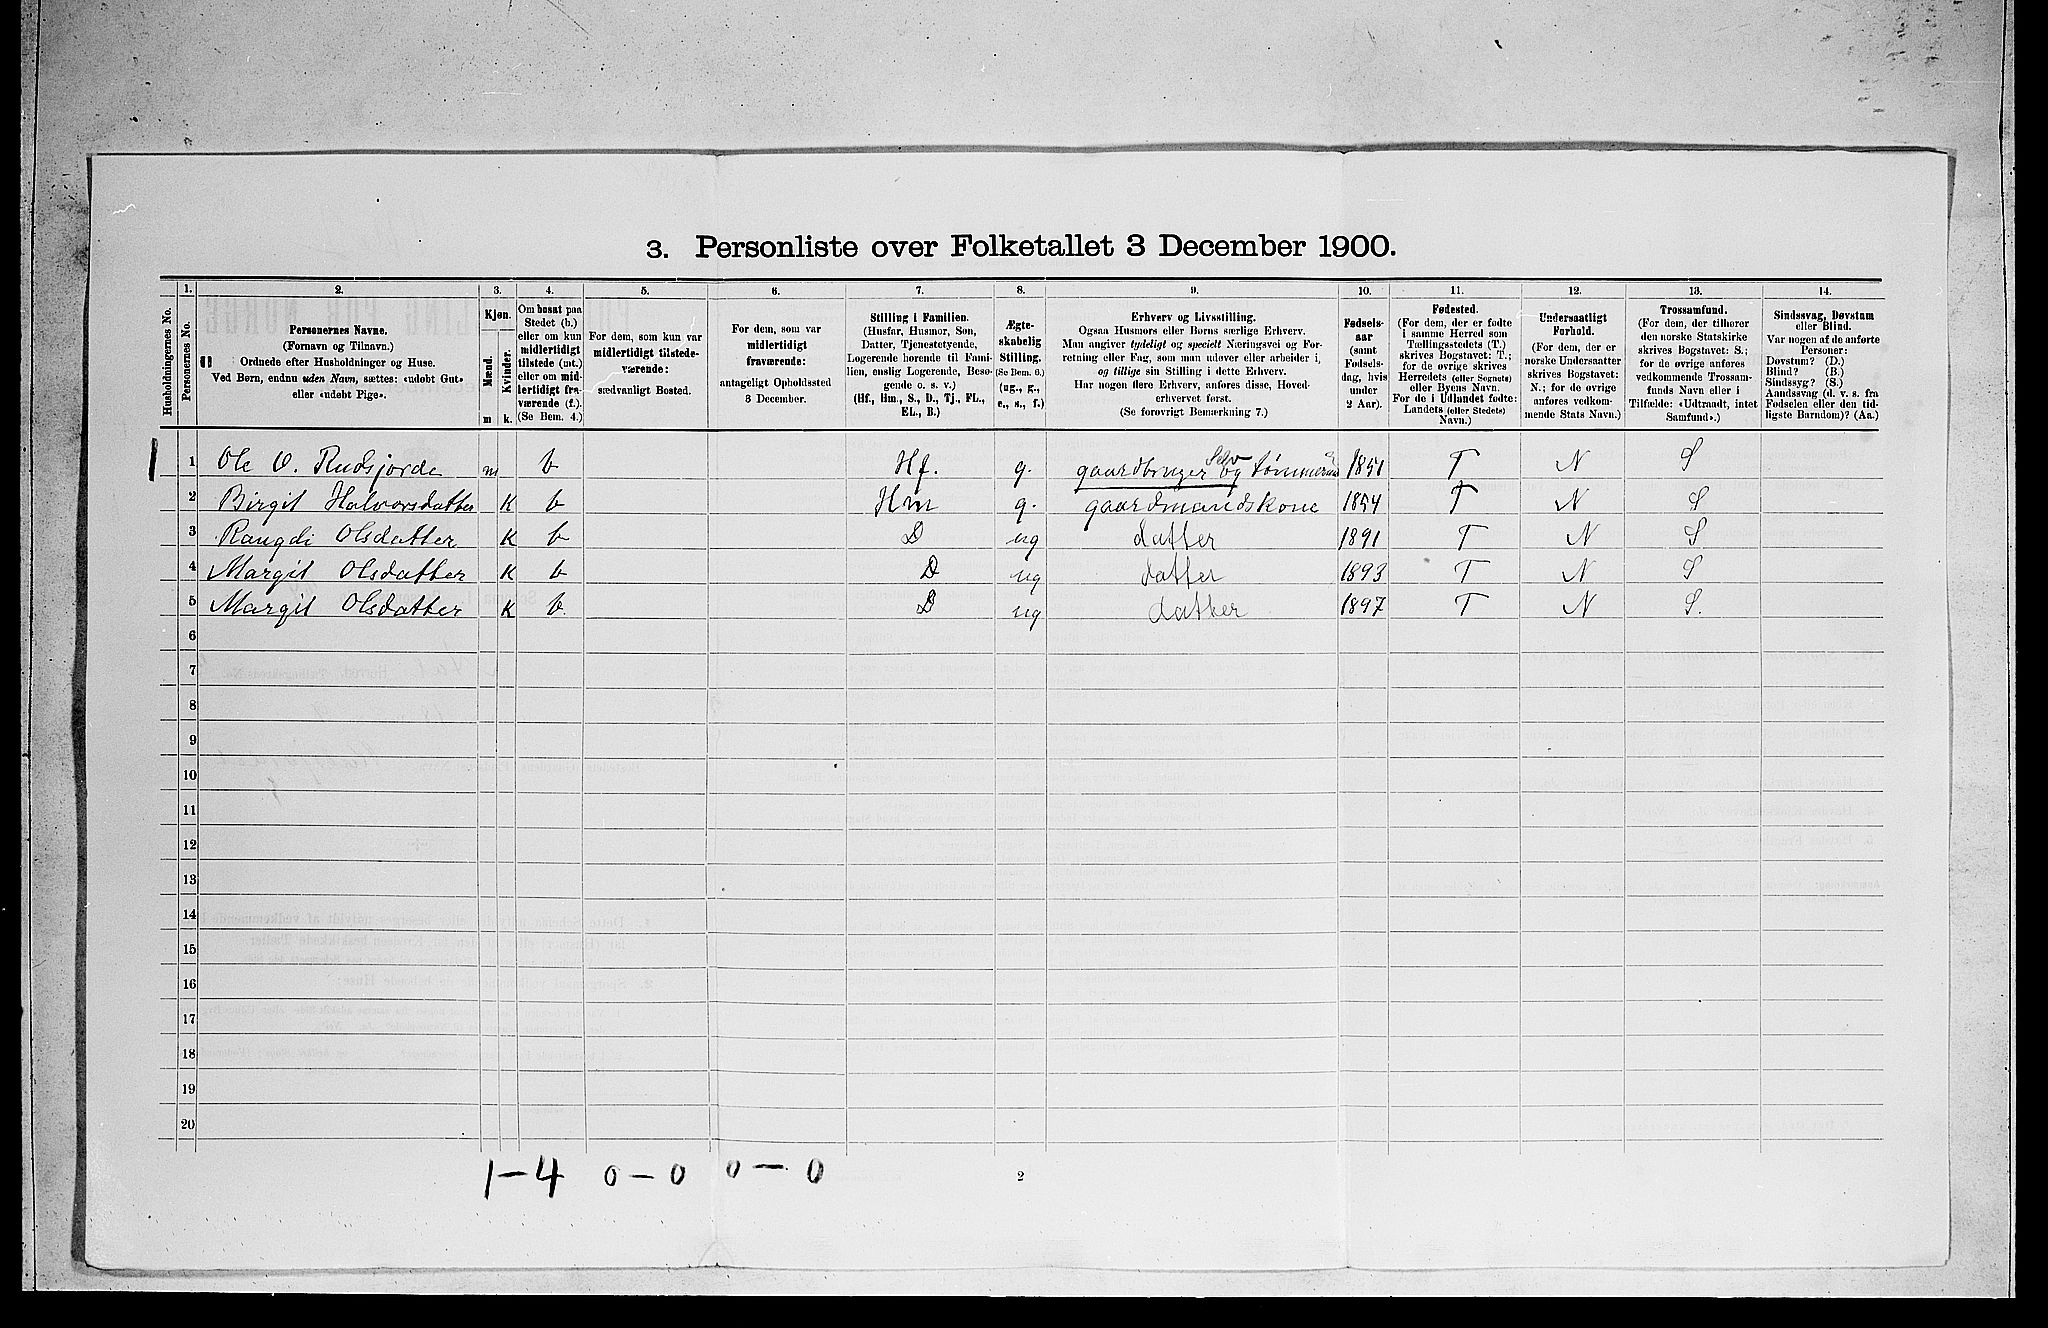 3. Personliste over Folketallet 3 December 1900.
1. 2. 3. 4. 5. 6. 7. 8. 9. 10. 11. 12. 13. 14.
Husholdningernes No.
Personernes No.
Personernes Navne.
(Fornavn og Tilnavn.)
Ordnede efter Husholdninger og Huse.
Ved Børn, endnu uden Navn, sættes: «udøbt Gut»
eller «udøbt Pige».
Kjøn.
Mænd.
Kvinder.
m k.
Om bosat paa
Stedet (b.)
eller om kun
midlertidigt
tilstede (mt.)
eller om mid-
lertidigt fra-
værende (f.).
(Se Bem. 4.)
For dem, som kun var
midlertidigt tilstede-
værende:
sædvanligt Bosted.
For dem, som var
midlertidigt
fraværende:
antageligt Opholdssted
3 December.
Stilling i Familien.
(Husfar, Husmor, Søn,
Datter, Tjenestetyende,
Logerende hørende til Fami-
lien, enslig Logerende, Besø-
gende o. s. v.)
(Hf., Hm., S., D., Tj., FL.,
EL., B.)
Ægte-
skabelig
Stilling.
(Se Bem. 6.)
(ug., g.,
e., s., f.)
Erhverv og Livsstilling.
Ogsaa Husmors eller Børns særlige Erhverv.
Man angiver tydeligt og specielt Næringsvei og For-
retning eller Fag, som man udøver eller arbeider i,
og tillige sin Stilling i dette Erhverv.
Har nogen flere Erhverv, anføres disse, Hoved-
erhvervet først.
(Se forøvrigt Bemærkning 7.)
Fødsels-
aar
(samt
Fødsels-
dag, hvis
under
2 Aar).
Fødested.
(For dem, der er fødte
i samme Herred som
Tællingsstedets (T.)
skrives Bogstavet: T.;
for de øvrige skrives
Herredets (eller Sognets)
eller Byens Navn.
For de i Udlandet fødte:
Landets (eller Stedets)
Navn.)
Undersaatligt
Forhold.
(For dem, der er
norske Undersaatter
skrives Bogstavet:
N.; for de øvrige
anføres vedkom-
mende Stats Navn.)
Trossamfund.
(For dem, der tilhører
den norske Statskirke
skrives Bogstavet: S.;
for de øvrige anføres
vedkommende Trossam-
funds Navn eller i
Tilfælde: «Udtraadt, intet
Samfund».)
Sindssvag, Døvstum
eller Blind.
Var nogen af de anførte
Personer:
Døvstum? (D.)
Blind? (B.)
Sindssyg? (S.)
Aandssvag (d. v. s. fra
Fødselen eller den tid-
ligste Barndom)? (Aa.)
1 1 Ole O. Rudsjorde m b Hf. g. gaardbruger Selv og 1851 T N S
2 Birgit Halvorsdatter K b Hm g. gaardmandskone 1854 T N S
3 Rangdi Olsdatter K b D ug datter 1891 T N S
4 Margit Olsdatter K b D ug datter 1893 T N S
5 Margit Olsdatter K b. D ug datter 1897 T N S.
6
7
8
9
10
11
12
13
14
15
16
17
18
19
20
1–4 0–0 0–0 2